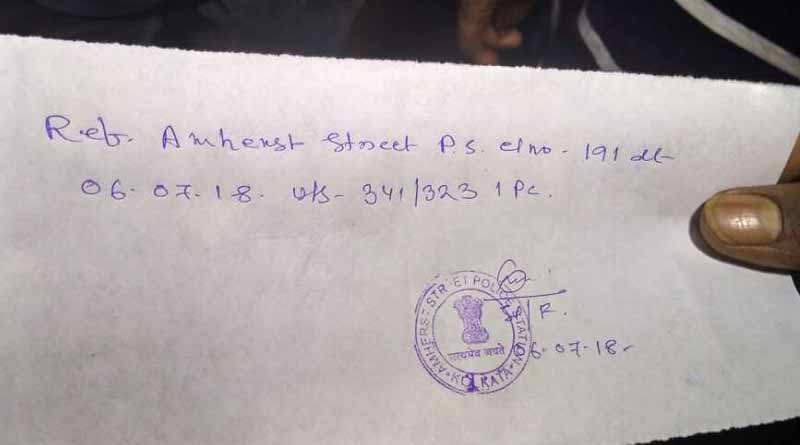 Ref. Amherst Street P.S. C/no - 191 dt-
06.07.18. u/s- 341/323 IPC.
AMHERST STREET POLICE STATION
सत्यमेव जयते
KOLKATA
06.07.18-